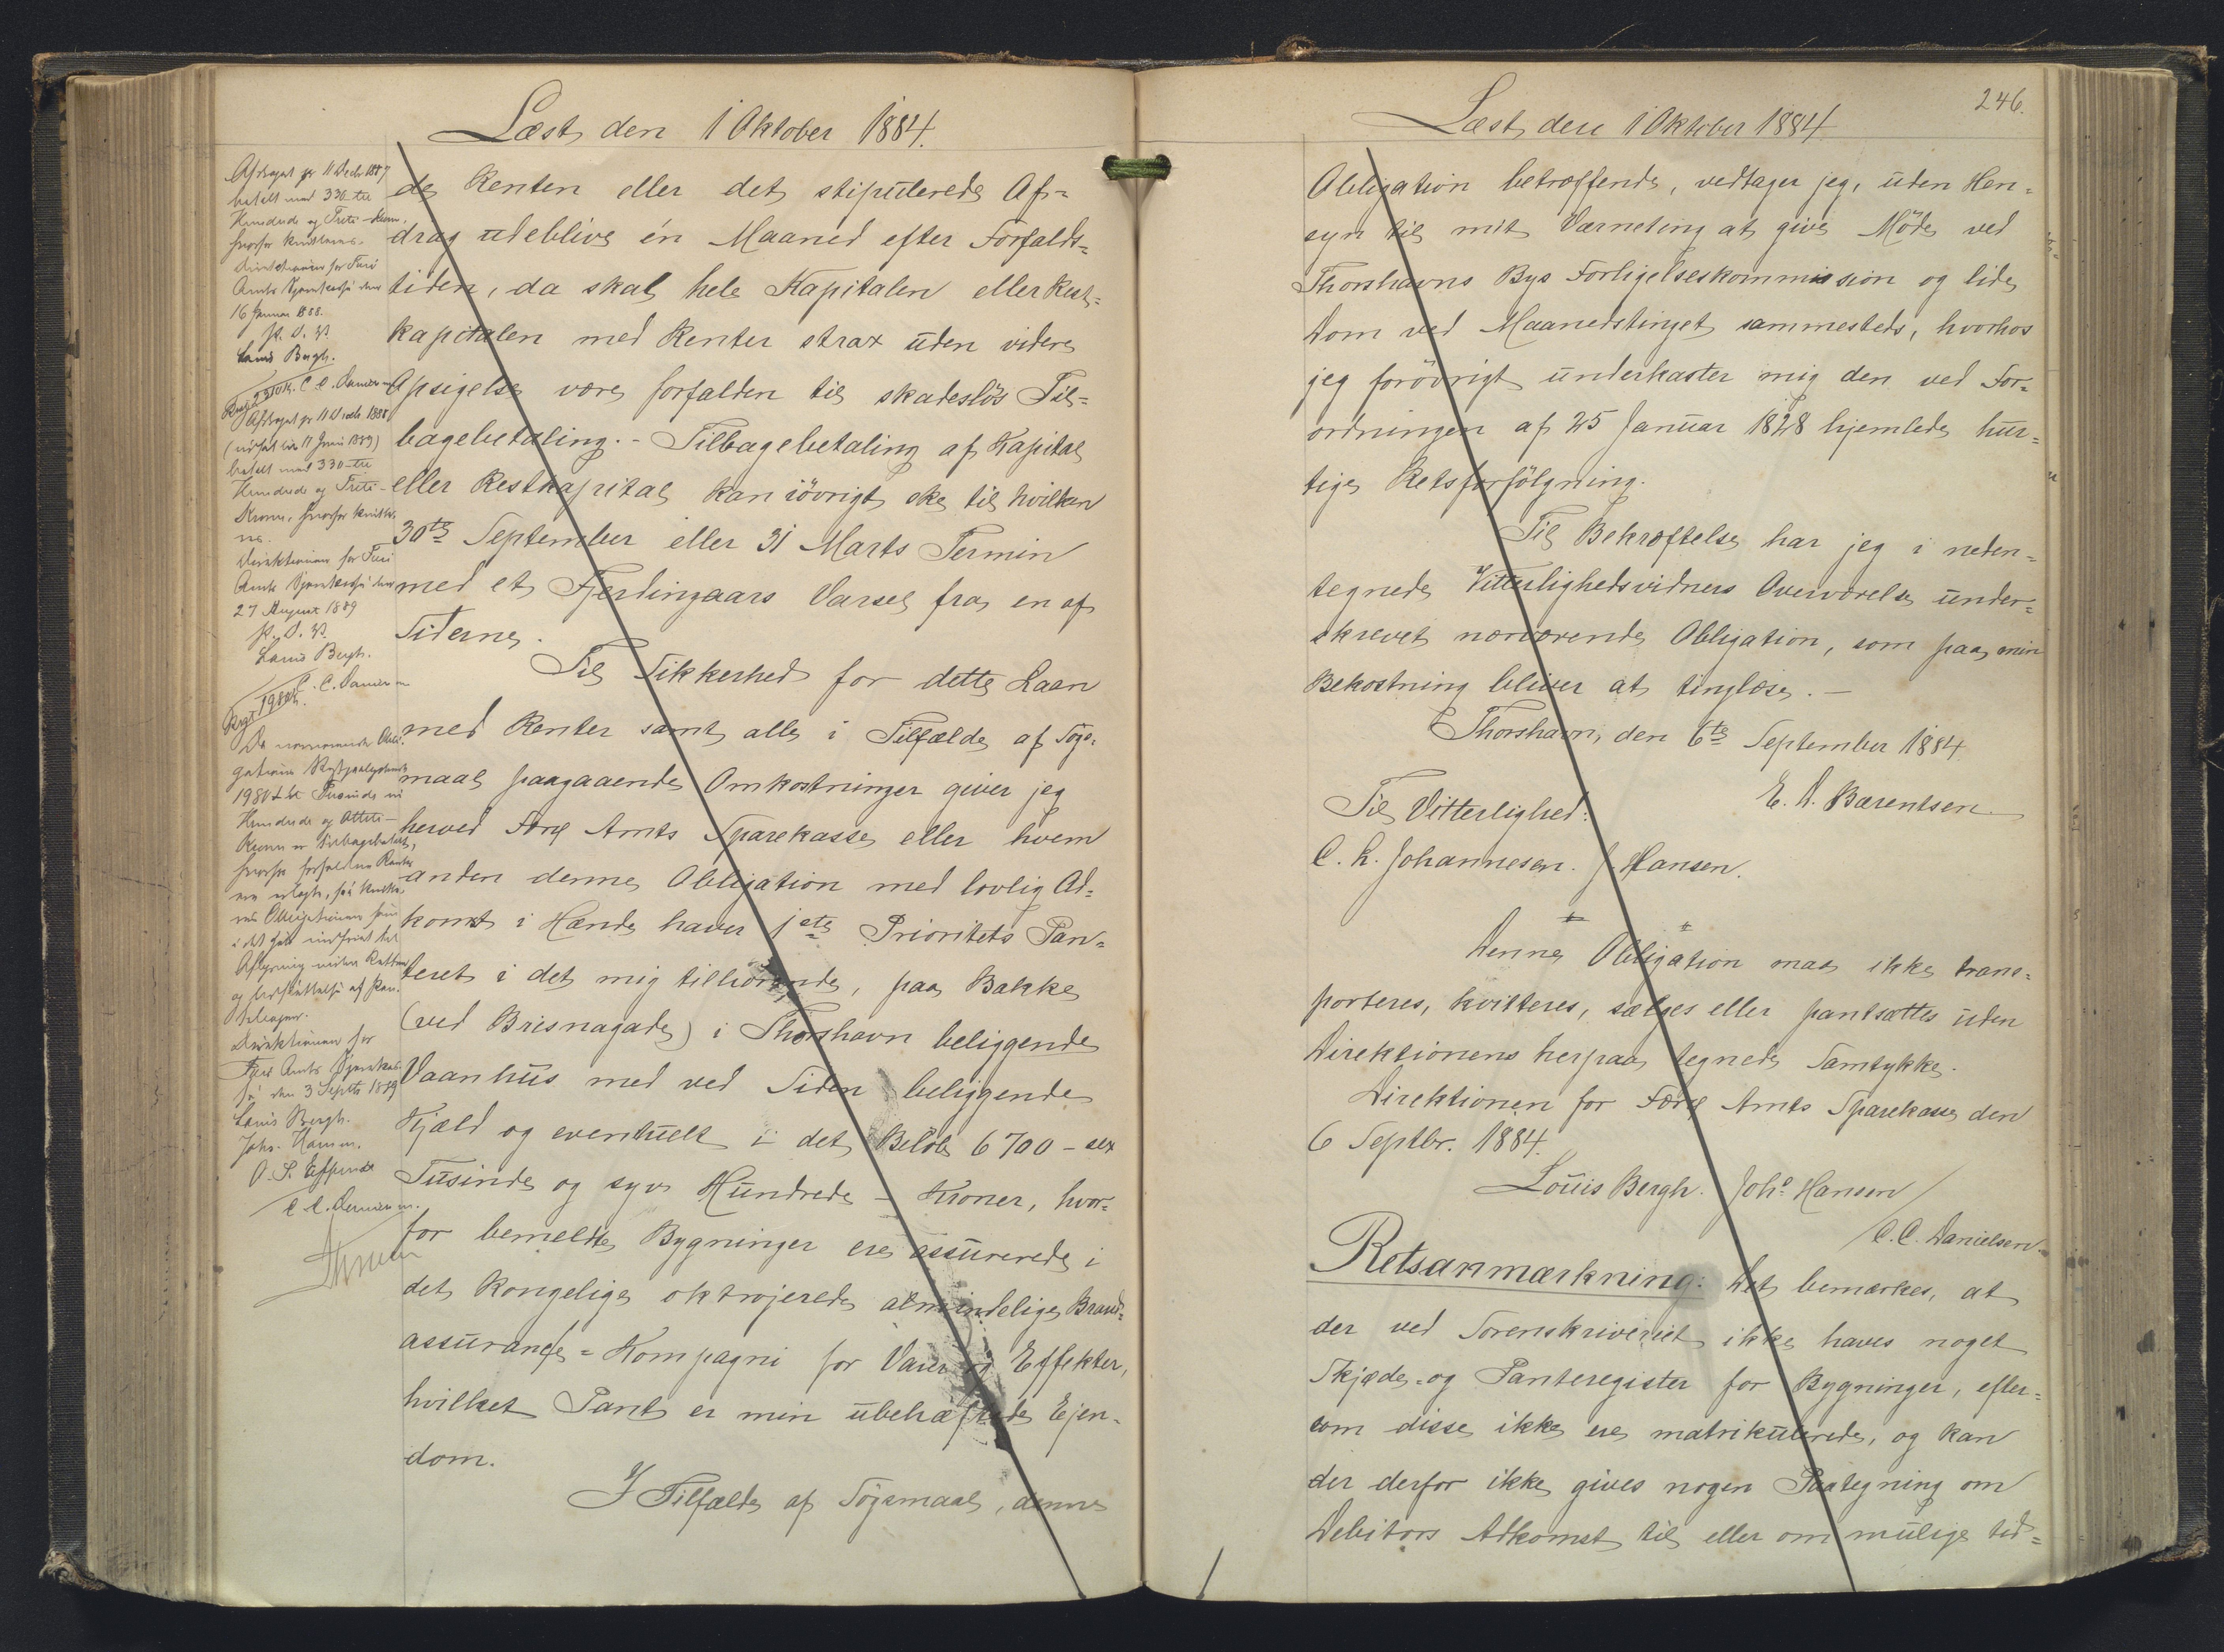 Læst den 1 Oktober 1884.
de Renten eller det stipulerede Af=
drag udeblive én Maaned efter Forfalds=
tiden, da skal hele Kapitalen eller Rest=
kapitalen med Renter strax uden videre
Opsigelse være forfalden til skadesløs Til=
bagebetaling. - Tilbagebetaling af Kapital
eller Restkapital kan iøvrigt ske til hvilken
30te September eller 31 Marts Termin
med et Fjerdingaars Varsel fra en af
Siderne.
Til Sikkerhed for dette Laan
med Renter samt alle i Tilfælde af Søgs-
maal paagaaende Omkostninger giver jeg
herved Færø Amts Sparekasse eller hvem
anden denne Obligation med lovlig Ad=
komst i Hænde haver 1ste Prioritets Pan=
teret i det mig tilhørende, paa Bakke
(ved Brisnagade) i Thorshavn beliggende
Vaanhus med ved Siden beliggende
Kjæld og eventuelt i det Beløb 6700 - sex
Tusinde og syv Hundrede - Kroner, hvor=
for bemeldte Bygninger ere assurerede i
det kongelige oktrojerede almindelige Brand=
assurance=Kompagni for Varer og Effekter,
hvilket Pant er min ubehæftede Ejen-
dom.
I Tilfælde af Søgsmaal, denne
Afdraget pr 11 Decbr 1887
betalt med 330 - tre
Hundrede og Treti - Kron.
hvorfor kvitteres.
Direktionen for Færø
Amts Sparekasse den
16 Januar 1888.
p. D. V.
Louis Bergh.
C. C. Danielsen
Rest 2310 Kr.
Afdraget pr 11 Decbr 1888
(udsat til 11 Juni 1889)
betalt med 330 - tre
Hundrede og Treti -
Kroner, hvorfor kvitte-
res.
Direktionen for Færø
Amts Sparekasse den
27 August 1889
p. D. V.
Louis Bergh.
C. C. Danielsen
Rest 1980 Kr.
Da nærværende Obli-
gations Restpaalydende
1980 Et Tusinde ni
Hundrede og Otteti -
Kroner er tilbagebetalt,
hvorfor forfaldne Renter
ere erlagte, saa kvitte-
res Obligationen
i det Hele indfriet til
Aflysning inden Retten
og Udslettelse af Pan-
tebogen.
Direktionen for
Færø Amts Sparekas-
se den 3 Septbr 1889
Louis Bergh.
Johs. Hansen.
C. C. Danielsen.
246.
Læst den 1 Oktober 1884
Obligation betræffende, vedtager jeg, uden Hen=
syn til mit Værneting at give Møde ved
Thorshavns Bys Forligelseskommission og lide
Dom ved Maanedstinget sammesteds, hvorhos
jeg forøvrigt underkaster mig den ved For=
ordningen af 25 Januar 1828 hjemlede hur=
tige Retsforfølgning.
Til Bekræftelse har jeg i neden=
tegnede Vitterlighedsvidners Overværelse under=
skrevet nærværende Obligation, som paa min
Bekostning bliver at tinglæse. -
Thorshavn, den 6te September 1884
E. D. Bærentsen.
Til Vitterlighed:
C. L. Johannesen. J Hansen.
Denne Obligation maa ikke trans=
porteres, kvitteres, sælges eller pantsættes uden
Direktionens herpaa tegnede Samtykke.
Direktionen for Færø Amts Sparekasse den
6 Septbr. 1884.
Louis Bergh. Johs Hansen
C. C. Danielsen.
Retsanmærkning: Det bemærkes, at
der ved Sorenskriveriet ikke haves noget
Skjøde- og Panteregister for Bygninger, efter=
som disse ikke ere matrikulerede, og kan
der derfor ikke gives nogen Paategning om
Debitors Adkomst til eller om mulige tid=